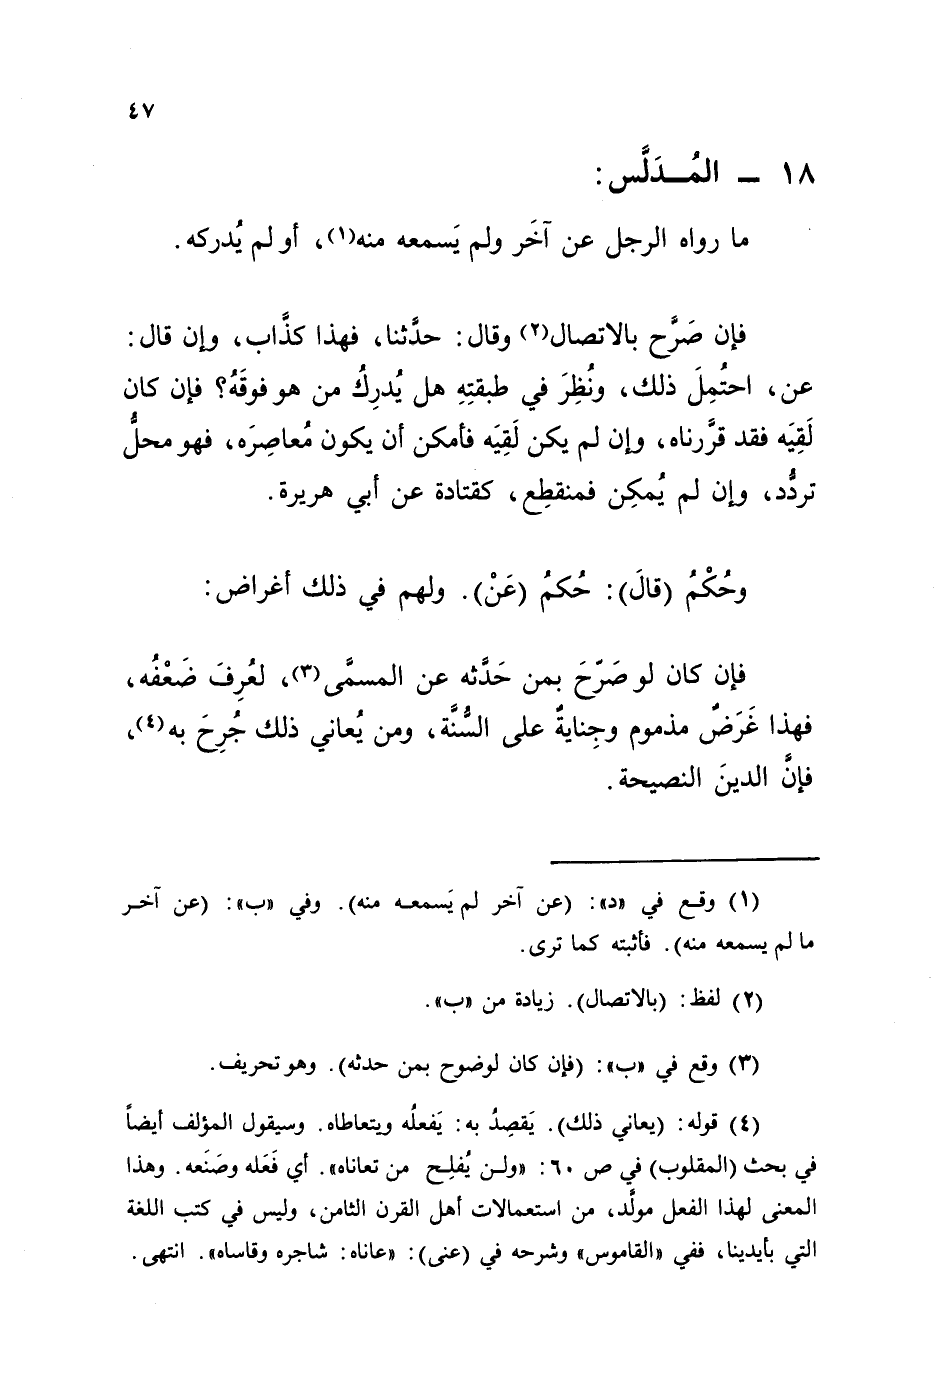 ٤٧
١٨ ــ المُـدَلَّس:
ما رواه الرجل عن آخَر ولم يَسمعه منه(١)، أو لم يُدركه.
فإن صَرَّح بالاتصال(٢) وقال: حدَّثنا، فهذا كذَّاب، وإن قال:
عن، احتُمِلَ ذلك، ونُظِرَ في طبقتِهِ هل يُدرِكُ من هو فوقَهُ؟ فإن كان
لَقِيَه فقد قرَّرناه، وإن لم يكن لَقِيَه فأمكن أن يكون مُعاصِرَه، فهو محلُّ
تردُّد، وإن لم يُمكِن فمنقطِع، كقتادة عن أبي هريرة.
وحُكْمُ (قالَ): حُكمُ (عَنْ). ولهم في ذلك أغراض:
فإن كان لو صَرّحَ بمن حَدَّثه عن المسمَّى(٣)، لعُرِفَ ضَعْفُه،
فهذا غَرَضٌ مذموم وجِنايةٌ على السُّنَّة، ومن يُعاني ذلك جُرِحَ به(٤)،
فإنَّ الدينَ النصيحة.
(١) وقـع في «د»: (عن آخر لم يَسمعـه منه). وفي «ب»: (عن آخـر
ما لم يسمعه منه). فأثبته كما ترى.
(٢) لفظ: (بالاتصال). زيادة من «ب».
(٣) وقع في «ب»: (فإن كان لوضوح بمن حدثه). وهو تحريف.
(٤) قوله: (يعاني ذلك). يَقصِدُ به: يَفعلُه ويتعاطاه. وسيقول المؤلف أيضاً
في بحث (المقلوب) في ص ٦٠: «ولـن يُفلِـح من تعاناه». أي فَعَله وصَنَعه. وهذا
المعنى لهذا الفعل مولَّد، من استعمالات أهل القرن الثامن، وليس في كتب اللغة
التي بأيدينا، ففي «القاموس» وشرحه في (عنى): «عاناه: شاجره وقاساه». انتهى.